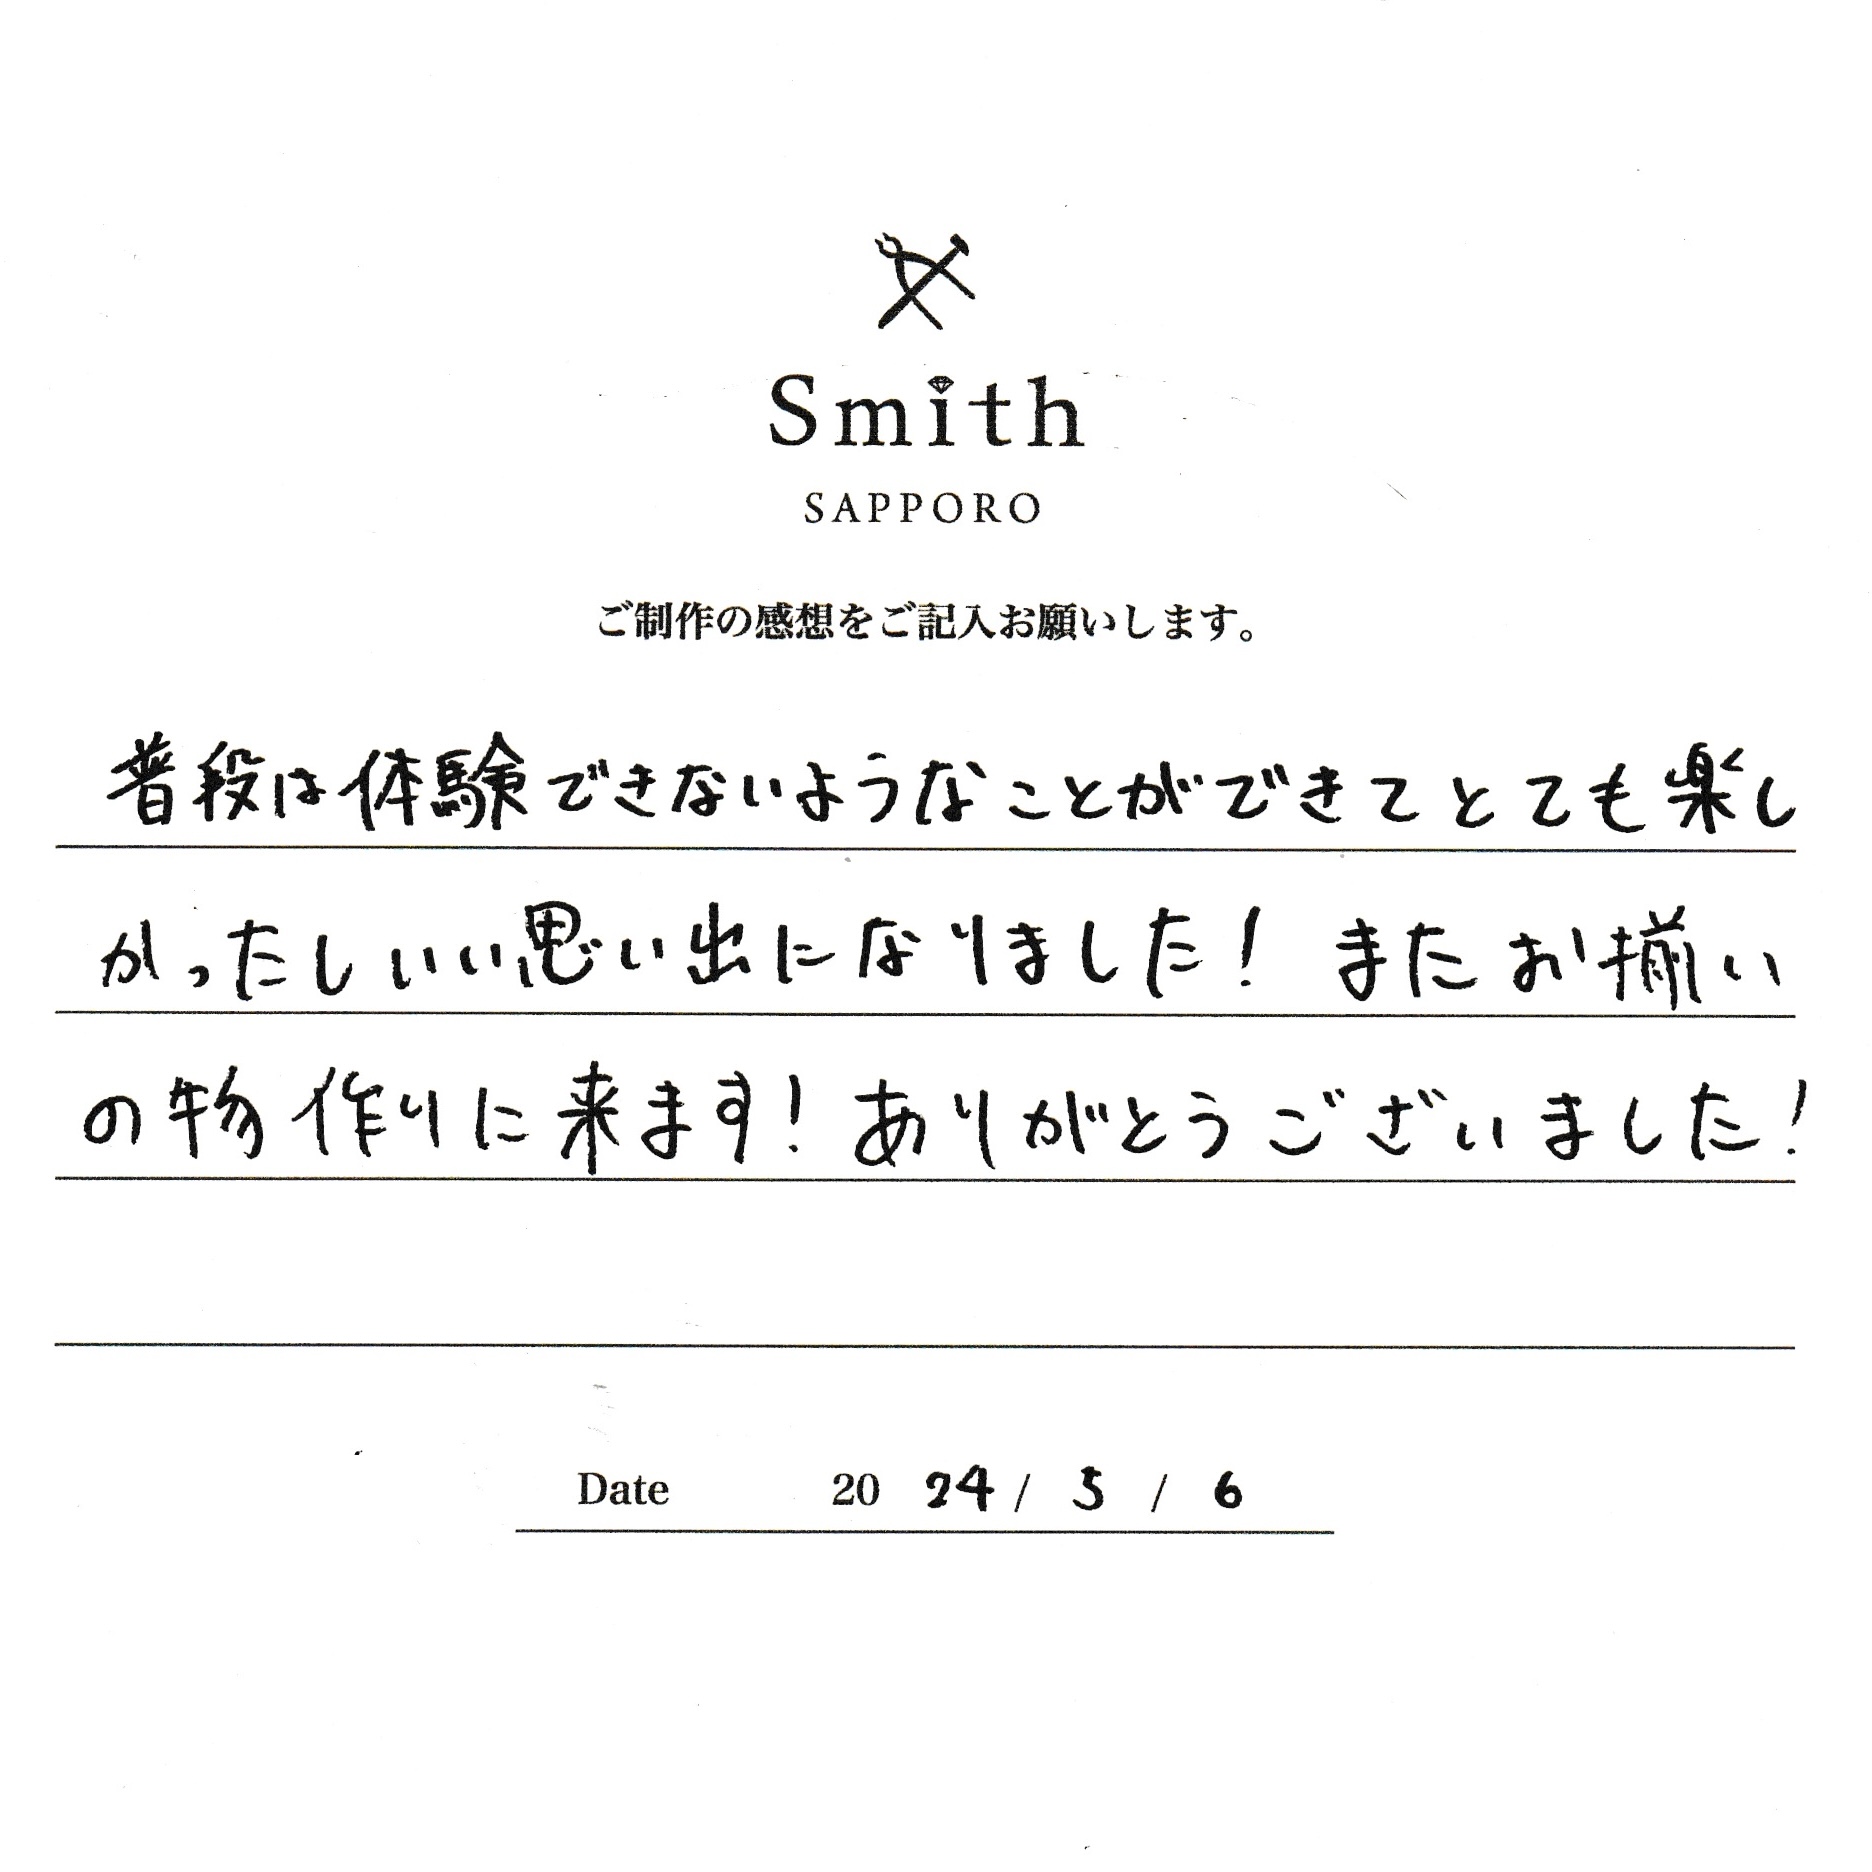 Smith
SAPPORO
ご制作の感想をご記入お願いします。
普段は体験できないようなことができてとても楽し
かったしいい思い出になりました! またお揃い
の物作りに来ます! ありがとうございました!
Date 20 24 / 5 / 6